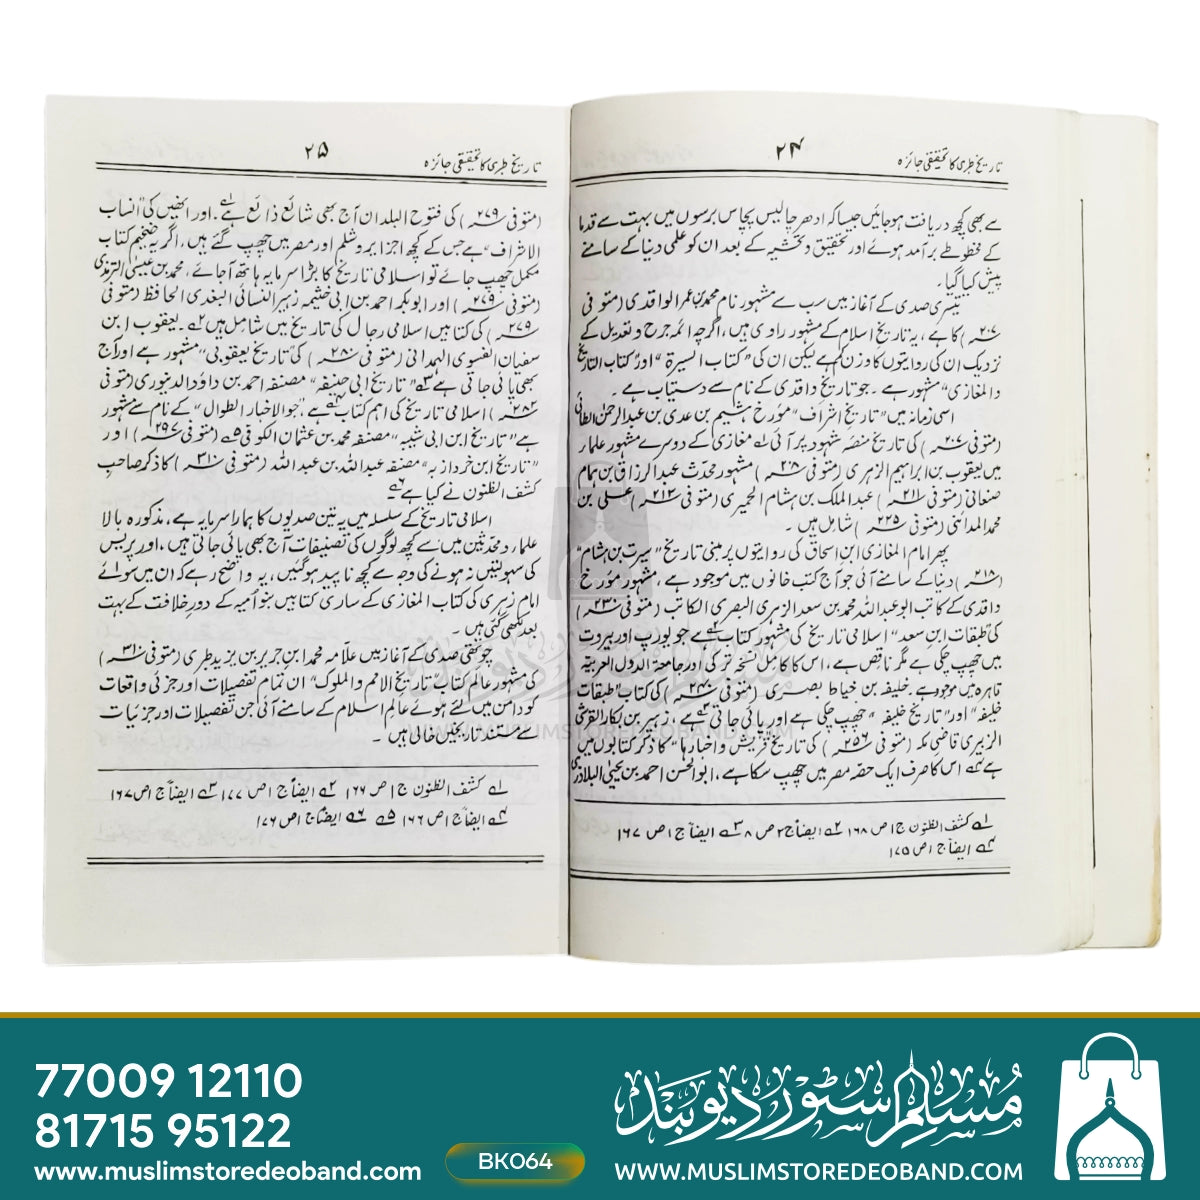 تاریخ طبری کا تحقیقی جائزہ
۲۴
سے بھی کچھ دریافت ہو جائیں جیسا کہ ادھر چالیس پچاس برسوں میں بہت سے قدما
کے مخطوطے برآمد ہوئے اور تحقیق و تحشیہ کے بعد ان کو علمی دنیا کے سامنے
پیش کیا گیا۔
تیسری صدی کے آغاز میں سب سے مشہور نام محمد بن عمر الواقدی (متوفی
۲۰۷ھ) کا ہے، یہ تاریخ اسلام کے مشہور راوی ہیں، اگرچہ ائمہ جرح و تعدیل کے
نزدیک ان کی روایتوں کا وزن کم ہے لیکن ان کی "کتاب السیرۃ" اور "کتاب التاریخ
والمغازی" مشہور ہے۔ جو تاریخ واقدی کے نام سے دستیاب ہے۔
اسی زمانہ میں "تاریخ اشراف" مؤرخ ہشیم بن عدی بن عبدالرحمٰن الطائی
(متوفی ۲۰۷ھ) کی تاریخ منصۂ شہود پر آئی ۱ے مغازی کے دوسرے مشہور علماء
میں یعقوب بن ابراہیم الزہری (متوفی ۲۰۸ھ) مشہور محدث عبدالرزاق بن ہمام
صنعانی (متوفی ۲۱۱ھ) عبدالملک بن ہشام الحمیری (متوفی ۲۱۳ھ) علی بن
محمد المدائنی (متوفی ۲۲۵ھ) شامل ہیں۔
پھر امام المغازی ابن اسحاق کی روایتوں پر مبنی تاریخ "سیرت بن ہشام"
(۲۱۸ھ) دنیا کے سامنے آئی جو آج کتب خانوں میں موجود ہے، مشہور مؤرخ
واقدی کے کاتب ابو عبداللہ محمد بن سعد الزہری البصری الکاتب (متوفی ۲۳۰ھ)
کی "طبقات ابن سعد" اسلامی تاریخ کی مشہور کتاب ہے ۲ے جو یورپ اور بیروت
میں چھپ چکی ہے مگر ناقص ہے، اس کا کامل نسخہ ترکی اور جامعۃ الدول العربیۃ
قاہرہ میں موجود ہے۔ خلیفہ بن خیاط بصری (متوفی ۲۴۰ھ) کی کتاب "طبقات
خلیفہ" اور "تاریخ خلیفہ" چھپ چکی ہے اور پائی جاتی ہے ۳ے، زہیر بن بکار القرشی
الزبیری قاضی مکہ (متوفی ۲۵۶ھ) کی تاریخ "قریش و اخبارہا" کا ذکر کتابوں میں
ہے ۴ے اس کا صرف ایک حصہ مصر میں چھپ سکا ہے، ابوالحسن احمد بن یحییٰ البلاذری
۱ے کشف الظنون ج۱ ص ۱۶۸ ۲ے ایضاً ج۲ ص ۸ ۳ے ایضاً ج۱ ص ۱۶۷
۴ے ایضاً ج۱ ص ۱۷۵
تاریخ طبری کا تحقیقی جائزہ
۲۵
(متوفی ۲۷۹ھ) کی فتوح البلدان آج بھی شائع ذائع ہے ۱ے۔ اور انھیں کی "انساب
الاشراف" ہے جس کے کچھ اجزا یروشلم اور مصر میں چھپ گئے ہیں، اگر یہ ضخیم کتاب
مکمل چھپ جائے تو اسلامی تاریخ کا بڑا سرمایہ ہاتھ آجائے، محمد بن عیسیٰ الترمذی
(متوفی ۲۷۹ھ) اور ابوبکر احمد بن ابی خثیمہ زہیر النسائی البغدی الحافظ (متوفی
۲۷۹ھ) کی کتابیں اسلامی رجال کی تاریخ میں شامل ہیں ۲ے۔ یعقوب ابن
سفیان الفسوی الہمدانی (متوفی ۲۸۰ھ) کی تاریخ یعقوبی" مشہور ہے اور آج
بھی پائی جاتی ہے ۳ے "تاریخ ابی حنیفہ" مصنفہ احمد بن داؤد الدنیوری (متوفی
۲۸۲ھ) اسلامی تاریخ کی اہم کتاب ہے ۴ے، جو الاخبار الطوال" کے نام سے مشہور
ہے "تاریخ ابن ابی شیبہ" مصنفہ محمد بن عثمان الکوفی ۵ے (متوفی ۲۹۷ھ) اور
"تاریخ ابن خردازبہ" مصنفہ عبداللہ بن عبداللہ (متوفی ۳۱۰ھ) کا ذکر صاحب
کشف الظنون نے کیا ہے ۶ے
اسلامی تاریخ کے سلسلہ میں یہ تین صدیوں کا ہمارا سرمایہ ہے، مذکورہ بالا
علماء و محدثین میں سے کچھ لوگوں کی تصنیفات آج بھی پائی جاتی ہیں، اور پریس
کی سہولتیں نہ ہونے کی وجہ سے کچھ ناپید ہو گئیں، یہ واضح رہے کہ ان میں سوائے
امام زہری کی کتاب المغازی کے ساری کتابیں بنو امیہ کے دور خلافت کے بہت
بعد لکھی گئی ہیں۔
چوتھی صدی کے آغاز میں علامہ محمد ابن جریر بن یزید طبری (متوفی ۳۱۰ھ)
کی مشہور عالم کتاب تاریخ الامم والملوک" ان تمام تفصیلات اور جزئی واقعات
کو دامن میں لئے ہوئے عالم اسلام کے سامنے آئی جن تفصیلات اور جزئیات
سے مستند تاریخیں خالی ہیں۔
۱ے کشف الظنون ج۱ ص ۱۶۶ ۲ے ایضاً ج۱ ص ۱۷۷ ۳ے ایضاً ج۱ ص ۱۶۷
۴ے ایضاً ج۱ ص ۱۶۶ ۵ے ۶ے ایضاً ج۱ ص ۱۷۶
مسلم سٹور دیوبند
WWW.MUSLIMSTOREDEOBAND.COM
77009 12110
81715 95122
www.muslimstoredeoband.com
BK064
مسلم سٹور دیوبند
WWW.MUSLIMSTOREDEOBAND.COM